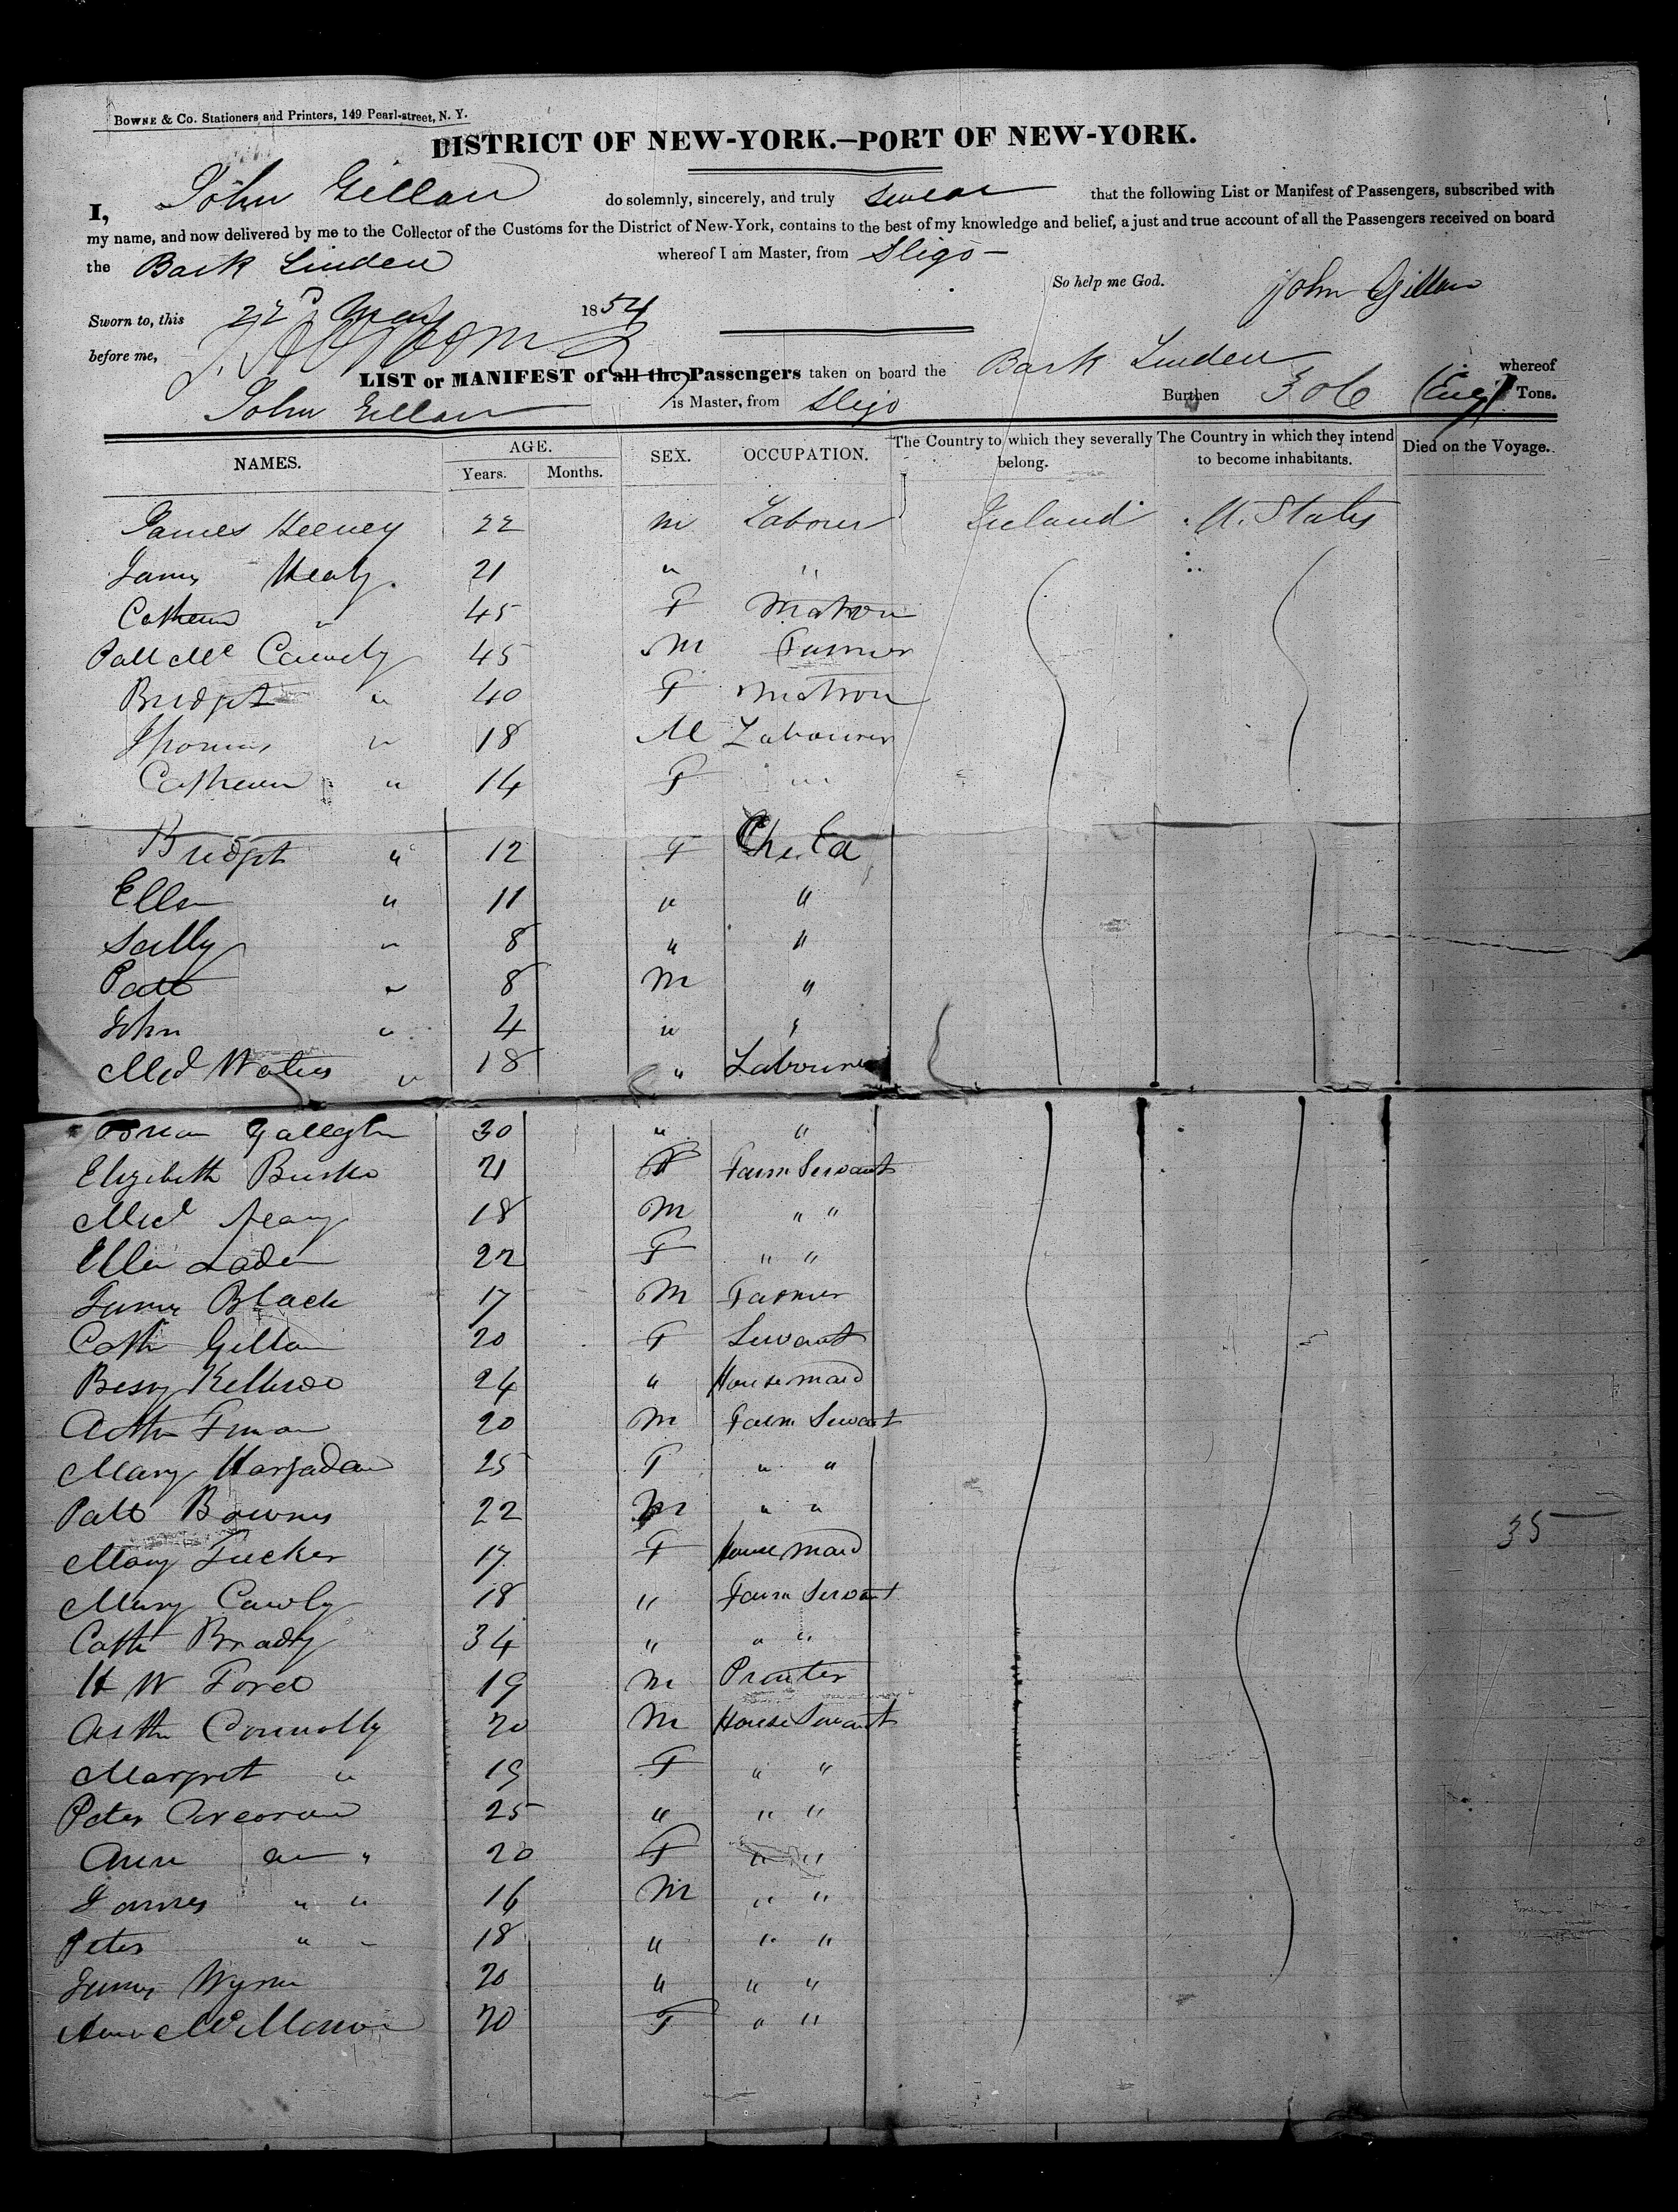 BOWNE & Co. Stationers and Printers, 149 Pearl-street, N. Y.
DISTRICT OF NEW-YORK.—PORT OF NEW-YORK.
I, John Gillan do solemnly, sincerely, and truly swear that the following List or Manifest of Passengers, subscribed with
my name, and now delivered by me to the Collector of the Customs for the District of New-York, contains to the best of my knowledge and belief, a just and true account of all the Passengers received on board
the Bark Linden whereof I am Master, from Sligo
So help me God. John Gillan
Sworn to, this 22d May 1854
before me,
LIST or MANIFEST of all the Passengers taken on board the Bark Linden whereof
John Gillan is Master, from Sligo Burthen 306 (Eng) Tons.
NAMES. AGE. Years. Months. SEX. OCCUPATION. The Country to which they severally belong. The Country in which they intend to become inhabitants. Died on the Voyage.
James Heeney 22 M Labour Ireland U. States
James Healy. 21 " "
Cathern " 45 F Matron
Patt Mc Cawely 45 M Farmer
Bridget " 40 F Matron
Thomas " 18 M Labourer
Cathern " 14 F "
Bridget " 12 F Child
Ellen " 11 " "
Sally " 8 " "
Patt " 8 M "
John " 4 " "
Mcl Waters " 18 " Labourer
Brian 30 " "
Elizibeth Burke 21 F Farm Servant
Micl 18 M " "
Ellen 22 F " "
James Black 17 M Farmer
Cath Gillan 20 F Servant
Besy 24 " House maid
20 M Farm Servant
Mary Hargadan 25 F " "
Patt 22 M " "
Mary Tucker 17 F House Maid
Mary Cawly 18 " Farm Servant
Cath Brady 34 " " "
H W Ford 19 M Printer
Arthr Connolly 20 M House Servant
Margret " 19 F " "
Peter Corcoran 25 " " "
Ann " 20 F " "
James " " 16 M " "
Peter " " 18 " " "
James Wynn 20 " " "
20 F " "
35